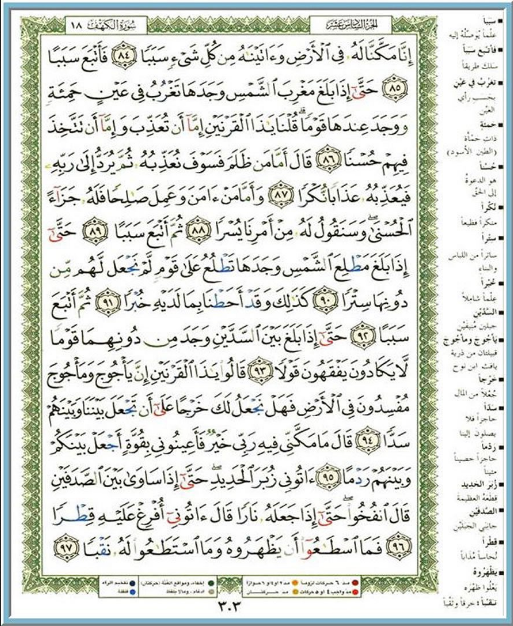 سُورَةُ الكَهْفِ ١٨
الجزء السادس عشر
إِنَّا مَكَّنَّا لَهُۥ فِى ٱلْأَرْضِ وَءَاتَيْنَٰهُ مِن كُلِّ شَىْءٍ سَبَبًا ٨٤ فَأَتْبَعَ سَبَبًا
٨٥ حَتَّىٰٓ إِذَا بَلَغَ مَغْرِبَ ٱلشَّمْسِ وَجَدَهَا تَغْرُبُ فِى عَيْنٍ حَمِئَةٍ
وَوَجَدَ عِندَهَا قَوْمًا ۗ قُلْنَا يَٰذَا ٱلْقَرْنَيْنِ إِمَّآ أَن تُعَذِّبَ وَإِمَّآ أَن تَتَّخِذَ
فِيهِمْ حُسْنًا ٨٦ قَالَ أَمَّا مَن ظَلَمَ فَسَوْفَ نُعَذِّبُهُۥ ثُمَّ يُرَدُّ إِلَىٰ رَبِّهِۦ
فَيُعَذِّبُهُۥ عَذَابًا نُّكْرًا ٨٧ وَأَمَّا مَنْ ءَامَنَ وَعَمِلَ صَٰلِحًا فَلَهُۥ جَزَآءً
ٱلْحُسْنَىٰ ۖ وَسَنَقُولُ لَهُۥ مِنْ أَمْرِنَا يُسْرًا ٨٨ ثُمَّ أَتْبَعَ سَبَبًا ٨٩ حَتَّىٰٓ
إِذَا بَلَغَ مَطْلِعَ ٱلشَّمْسِ وَجَدَهَا تَطْلُعُ عَلَىٰ قَوْمٍ لَّمْ نَجْعَل لَّهُم مِّن
دُونِهَا سِتْرًا ٩٠ كَذَٰلِكَ وَقَدْ أَحَطْنَا بِمَا لَدَيْهِ خُبْرًا ٩١ ثُمَّ أَتْبَعَ
سَبَبًا ٩٢ حَتَّىٰٓ إِذَا بَلَغَ بَيْنَ ٱلسَّدَّيْنِ وَجَدَ مِن دُونِهِمَا قَوْمًا
لَّا يَكَادُونَ يَفْقَهُونَ قَوْلًا ٩٣ قَالُوا۟ يَٰذَا ٱلْقَرْنَيْنِ إِنَّ يَأْجُوجَ وَمَأْجُوجَ
مُفْسِدُونَ فِى ٱلْأَرْضِ فَهَلْ نَجْعَلُ لَكَ خَرْجًا عَلَىٰٓ أَن تَجْعَلَ بَيْنَنَا وَبَيْنَهُمْ
سَدًّا ٩٤ قَالَ مَا مَكَّنِّى فِيهِ رَبِّى خَيْرٌ فَأَعِينُونِى بِقُوَّةٍ أَجْعَلْ بَيْنَكُمْ
وَبَيْنَهُمْ رَدْمًا ٩٥ ءَاتُونِى زُبَرَ ٱلْحَدِيدِ ۖ حَتَّىٰٓ إِذَا سَاوَىٰ بَيْنَ ٱلصَّدَفَيْنِ
قَالَ ٱنفُخُوا۟ ۖ حَتَّىٰٓ إِذَا جَعَلَهُۥ نَارًا قَالَ ءَاتُونِىٓ أُفْرِغْ عَلَيْهِ قِطْرًا
٩٦ فَمَا ٱسْطَٰعُوٓا۟ أَن يَظْهَرُوهُ وَمَا ٱسْتَطَٰعُوا۟ لَهُۥ نَقْبًا ٩٧
سَبَبًا
علمًا يوصله إليه
فأتبع سببًا
سلك طريقًا
تغرب في عين
بحسب رأي
العين
حمئة
ذات حمأة
(الطين الأسود)
حسنًا
هو الدعوة
إلى الحق
نكرًا
منكرًا فظيعًا
سترًا
ساترًا من اللباس
والبناء
خبرًا
علمًا شاملًا
السدين
جبلين منيفين
يأجوج ومأجوج
قبيلتان من ذرية
يافث ابن نوح
خرجًا
جعلًا من المال
سدًا
حاجزًا فلا
يصلون إلينا
ردمًا
حاجزًا حصينًا
متينًا
زبر الحديد
قطعه العظيمة
الصدفين
جانبي الجبلين
قطرًا
نحاسًا مذابًا
يظهروه
يعلوا ظهره
نقبًا : خرقًا وثقبًا
مد ٦ حركات لزومًا
مد ٢ أو ٤ أو ٦ جوازًا
مد واجب ٤ أو ٥ حركات
مد حركتان
إخفاء، ومواقع الغنة (حركتان)
إدغام، وما لا يلفظ
تفخيم الراء
قلقلة
٣٠٣